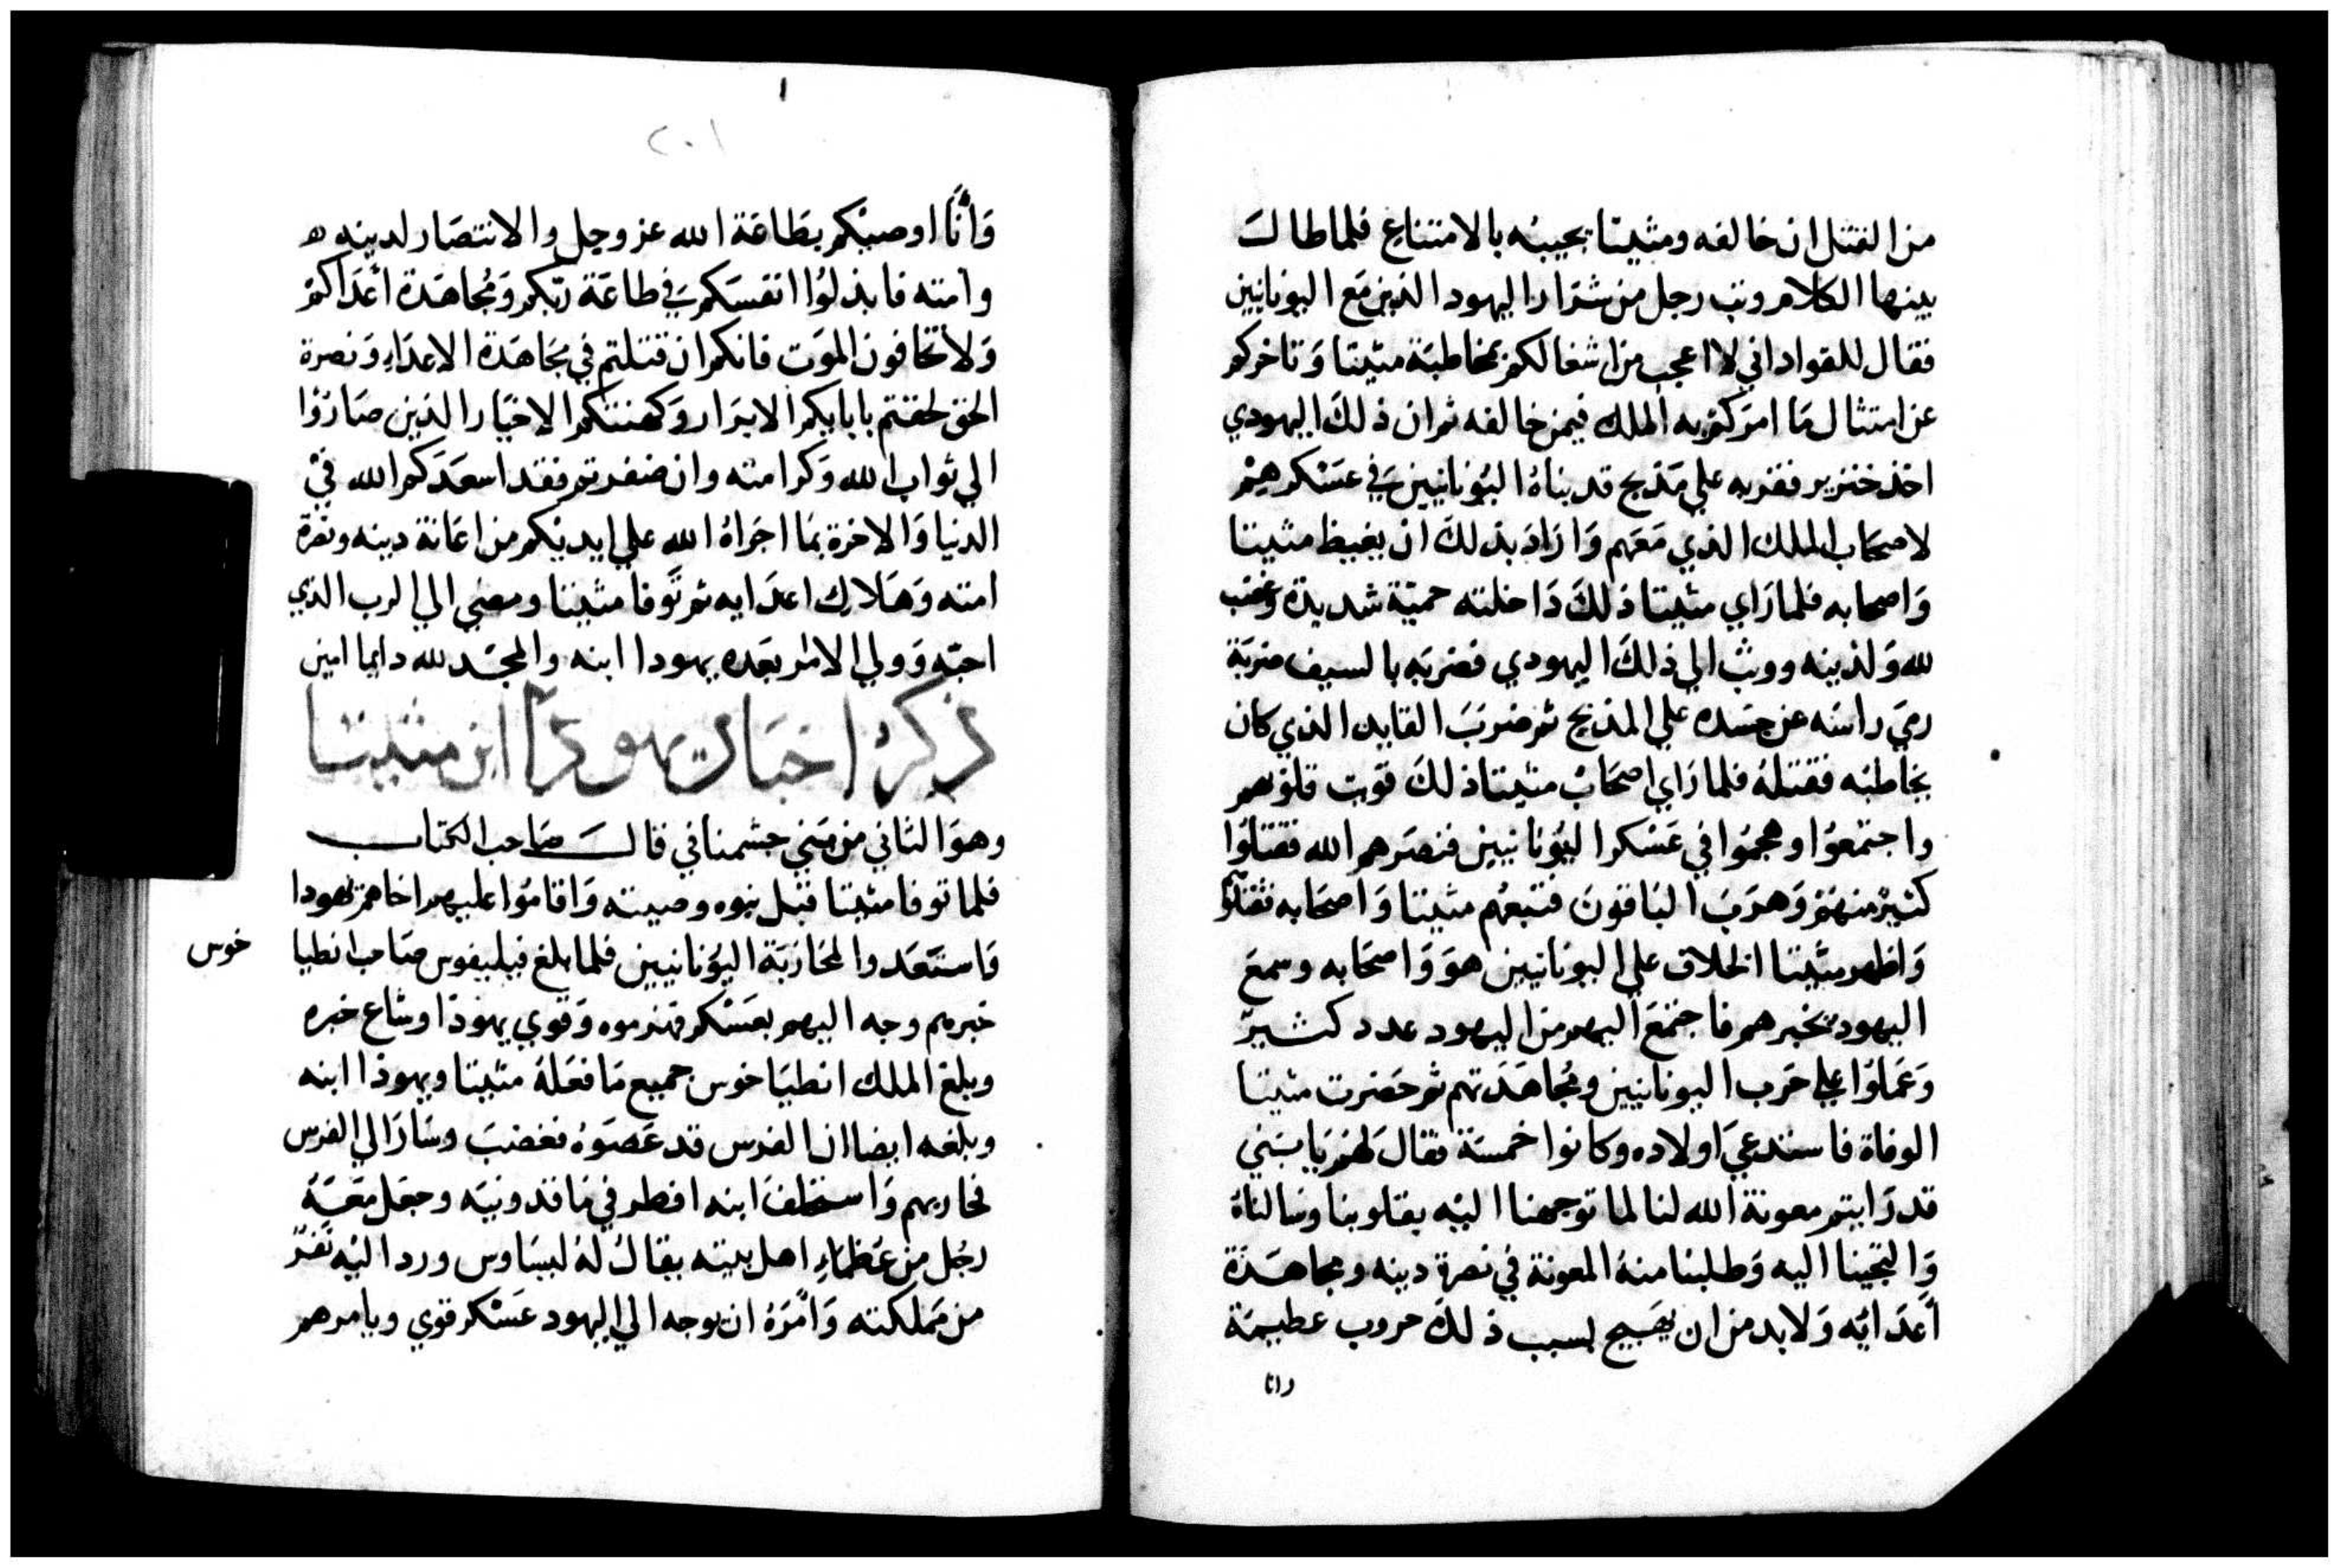 من القتل ان خالفه ومثيتا يجيبه بالامتناع فلما طالت
بينهما الكلام وثب رجل من شرار اليهود الذين مع اليونانيين
فقال للقواد اني لا اعجب من اشغالكم بمخاطبة مثيتا وتاخركم
عن امتثال ما امركم به الملك فيمن خالفه ثم ان ذلك اليهودي
اخذ خنزير فقربه علي مذبح قد بناه اليونانيين في عسكرهم
لاصحاب الملك الذي معهم واراد بذلك ان يغيظ مثيتا
واصحابه فلما راي مثيتا ذلك داخلته حمية شديدة وغضب
لله ولدينه ووثب الي ذلك اليهودي فضربه بالسيف ضربة
رمي راسه عن جسده علي المذبح ثم ضرب القايد الذي كان
يخاطبه فقتله فلما راي اصحاب مثيتا ذلك قويت قلوبهم
واجتمعوا وهجموا في عسكر اليونانيين فنصرهم الله فقتلوا
كثير منهم وهرب الباقون فتبعهم مثيتا واصحابه فقتلوا
واظهر مثيتا الخلاف علي اليونانيين هو واصحابه وسمع
اليهود بخبرهم فاجتمع اليهم من اليهود عدد كثير
وعملوا علي حرب اليونانيين ومجاهدتهم ثم حضرت مثيتا
الوفاة فاستدعي اولاده وكانوا خمسة فقال لهم يا بني
قد رايتم معونة الله لنا لما توجهنا اليه بقلوبنا وسالناه
والتجينا اليه وطلبنا منه المعونة في نصرة دينه ومجاهدة
أعدائه ولابد من ان يهيج لسبب ذلك حروب عظيمة
وانا
٢٠١
وأنا اوصيكم بطاعة الله عز وجل والانتصار لدينه ه
وامته فابذلوا انفسكم في طاعة ربكم ومجاهدة أعداكم
ولا تخافون الموت فانكم ان قتلتم في مجاهدة الاعداء ونصرة
الحق لحقتم بابايكم الابرار وكهنتكم الاخيار الذين صاروا
الي ثواب الله وكرامته وان ضفرتم فقد اسعدكم الله في
الدنيا والاخرة بما اجراه الله علي ايديكم من اعانة دينه ونصرة
امته وهلاك اعدايه ثم توفا مثيتا ومضي الي الرب الذي
احبه وولي الامر بعده يهودا ابنه والمجد لله دايما امين
ذكر اخبار يهودا ابن مثيتا
وهو الثاني من بني حشمناي قال صاحب الكتاب
فلما توفا مثيتا قبل بنوه وصيته واقاموا عليهم اخاهم يهودا
واستعدوا لمحاربة اليونانيين فلما بلغ فيليفوس صاحب انطيا
خوس
خبرهم وجه اليهم بعسكر فهزموه وقوي يهودا وشاع خبره
وبلغ الملك انطياخوس جميع ما فعله مثيتا ويهودا ابنه
وبلغه ايضا ان الفرس قد عصوه فغضب وسار الي الفرس
لحاربهم واستخلف ابنه افطر في ماقدونيه وجعل معه
رجل من عظماء اهل بيته يقال له ليساوس ورد اليه تدبر
من مملكته وأمره ان يوجه الي اليهود عسكر قوي ويامرهم